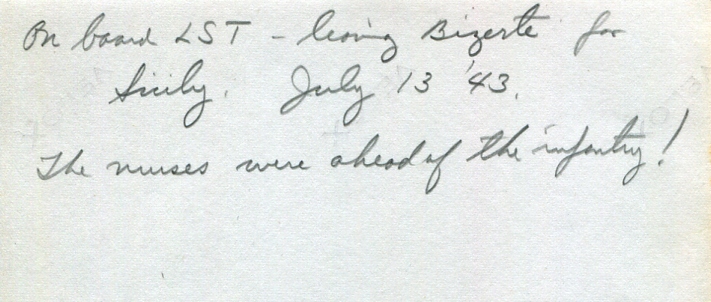 On board LST - leaving Bizerte for
Sicily. July 13 '43.
The nurses were ahead of the infantry!